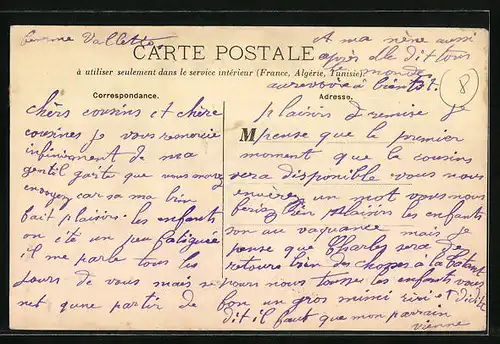 femme Valletto
A ma mère aussi
CARTE POSTALE
après elle dit tous
à utiliser seulement dans le service intérieur (France, Algérie, Tunisie)
le monde
au revoire à bientot.
8
Correspondance.
Adresse
chèrs cousins et chère
cousines je vous remercie
infiniment de ma
gentil carte que vous mavez
envoyez car sa ma bien
fait plaisirs. les enfants
on été un peu fatiguée
il me parle tous les
jours de vous mais se
net qune partir de
plaisirs remise je
M
pense que le premier
moment que la cousins
vera disponible vous nous
enverez un mot vous nous
feriez bien plaisirs les enfants
son au vaquance mais je
pense que Charles sera de
retours bien des choses à la
pours nous tousser les enfants vous
bon un gros mimi riri et
dit il faut que mon parrain
vienne